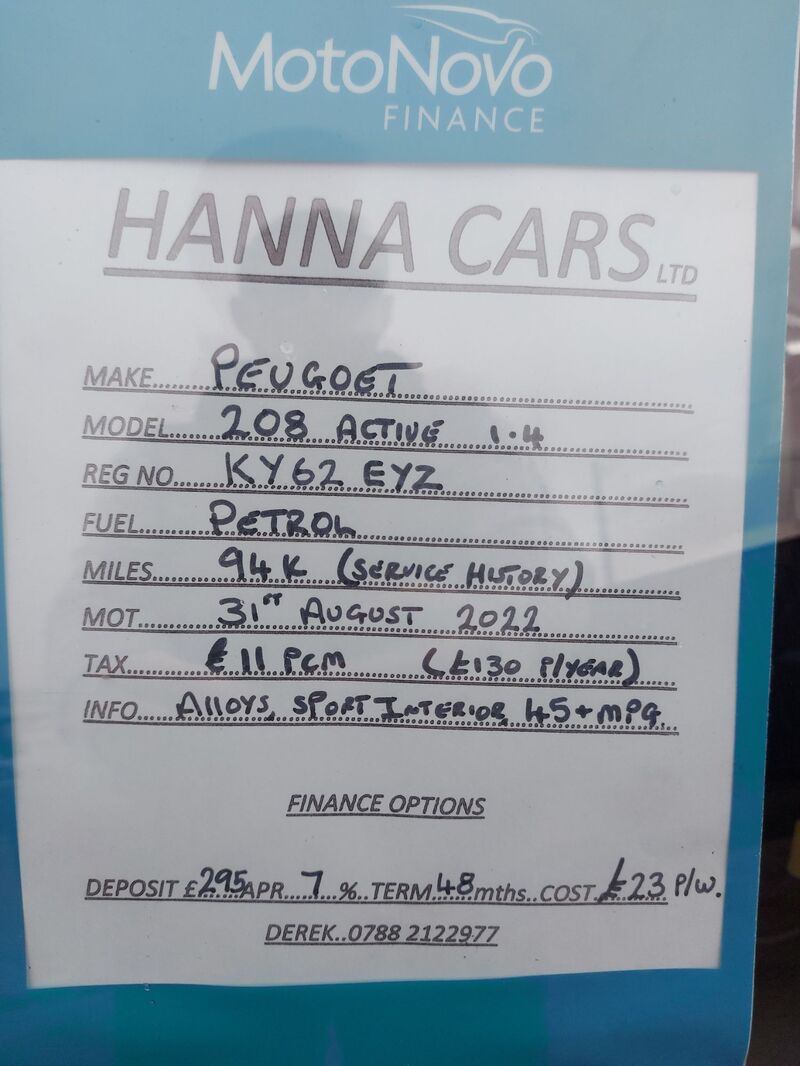 MotoNovo
FINANCE
HANNA CARS LTD
MAKE........PEUGOET
MODEL.....208 ACTIVE 1.4
REG NO.....KY62 EYZ
FUEL.........PETROL
MILES........94K (SERVICE HISTORY)
MOT..........31ST AUGUST 2022
TAX...........£11 PCM (£130 P/YEAR)
INFO.....Alloys, SPORT INTERIOR, 45+MPG.
FINANCE OPTIONS
DEPOSIT £295 APR...7..%..TERM.48mths..COST.£23 P/W.
DEREK..0788 2122977